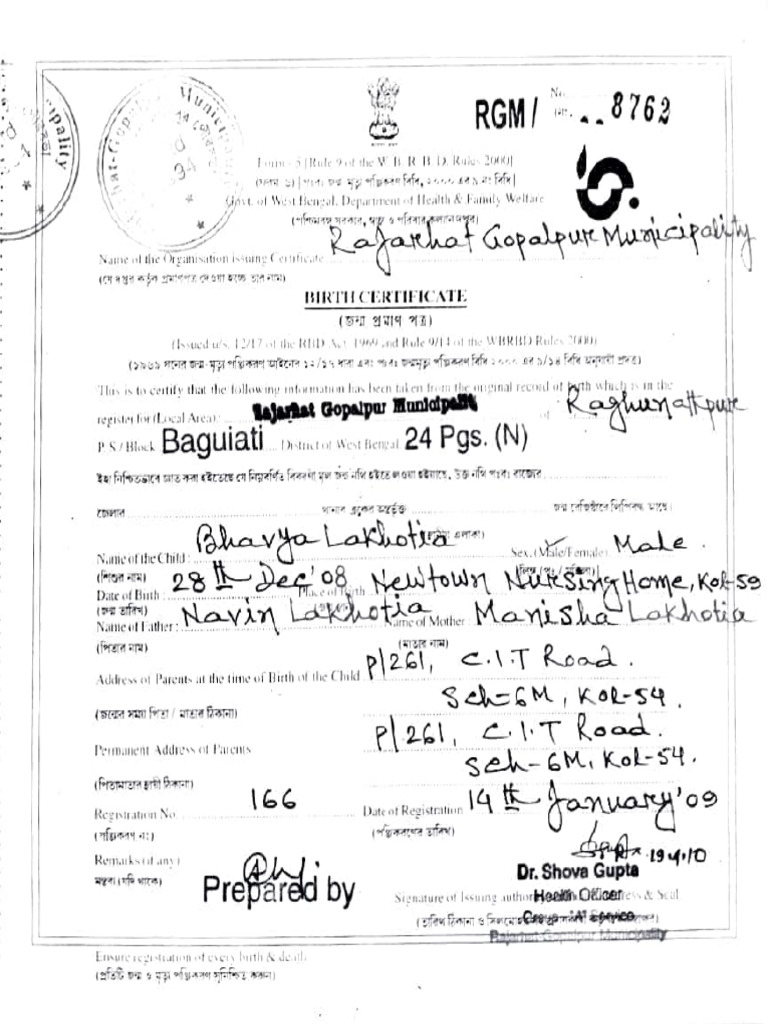 No. 8762
RGM/
Form - 5 [Rule 9 of the W. B. R. B. D. Rules 2000]
Govt. of West Bengal, Department of Health & Family Welfare
(পশ্চিমবঙ্গ সরকার, স্বাস্থ্য ও পরিবার কল্যাণ দপ্তর)
Rajarhat Gopalpur Municipality
Name of the Organisation issuing Certificate
(যে দপ্তর কর্তৃক প্রমাণপত্র দেওয়া হচ্ছে তার নাম)
BIRTH CERTIFICATE
(জন্ম প্রমাণ পত্র)
(Issued u/s. 12/17 of the RBD Act, 1969 and Rule 9/14 of the WBRBD Rules 2000)
This is to certify that the following information has been taken from the original record of birth which is in the
register for (Local Area) : Rajarhat Gopalpur Municipality of Raghunathpur
P.S / Block Baguiati District of West Bengal 24 Pgs. (N)
জেলার
Name of the Child : Bhavya Lakhotia Sex. (Male/Female) Male.
(শিশুর নাম)
Date of Birth : 28th Dec'08 Place of Birth Newtown Nursing Home, Kol-59
(জন্ম তারিখ)
Name of Father : Navin Lakhotia Name of Mother : Manisha Lakhotia
(পিতার নাম) (মাতার নাম)
Address of Parents at the time of Birth of the Child P/261, C.I.T Road.
Sch-6M, Kol-54.
(জন্মের সময় পিতা / মাতার ঠিকানা)
Permanent Address of Parents P/261, C.I.T Road.
Sch-6M, Kol-54.
(পিতামাতার স্থায়ী ঠিকানা)
Registration No. 166 Date of Registration 14th January'09
(পঞ্জিকরণ নং) (পঞ্জিকরণের তারিখ)
Remarks (if any) 19.4.10
মন্তব্য (যদি থাকে)
Prepared by Dr. Shova Gupta
Signature of Issuing Health Officer & Seal
Rajarhat Gopalpur Municipality
Ensure registration of every birth & death
(প্রতিটি জন্ম ও মৃত্যু পঞ্জিকরণ সুনিশ্চিত করুন)